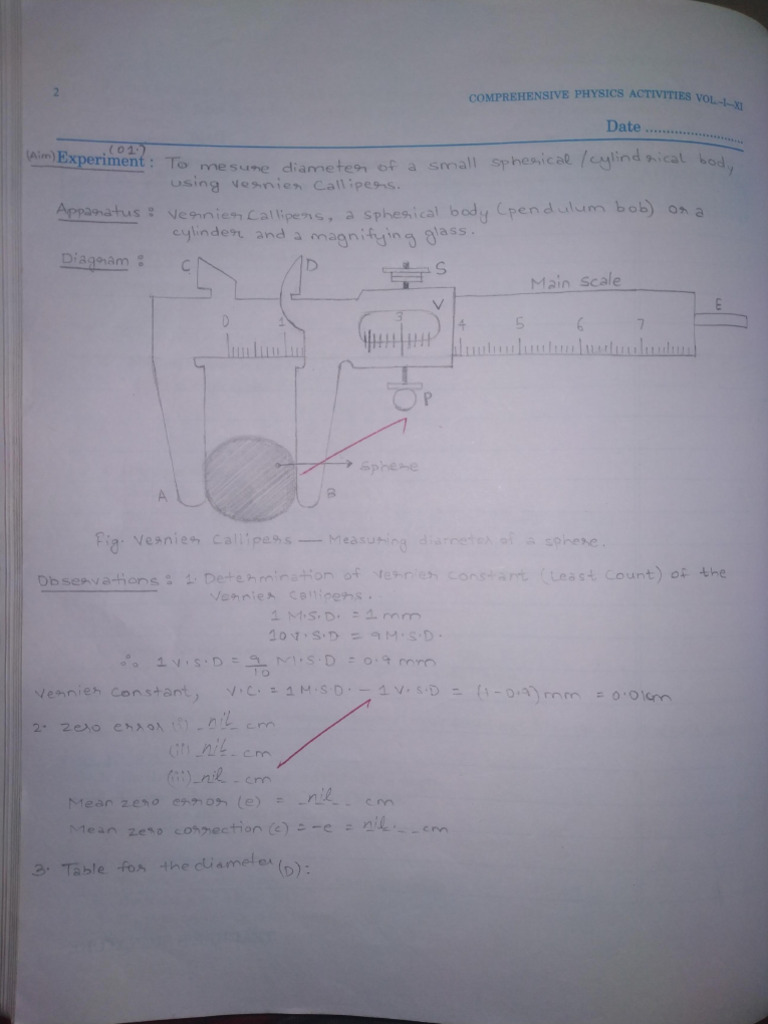 2
COMPREHENSIVE PHYSICS ACTIVITIES VOL.-I—XI
Date ..........................
(01.)
(Aim) Experiment : To mesure diameter of a small spherical / cylindrical body,
using Vernier Callipers.
Apparatus : Vernier Callipers, a spherical body (pendulum bob) or a
cylinder and a magnifying glass.
Diagram :
C D S
Main scale
V E
0 1 3 4 5 6 7
P
sphere
A B
Fig. Vernier Callipers — Measuring diameter of a sphere.
Observations : 1. Determination of Vernier constant (Least Count) of the
Vernier Callipers.
1 M.S.D. = 1 mm
10 V.S.D = 9 M.S.D.
∴ 1 V.S.D = 9/10 M.S.D = 0.9 mm
Vernier constant, V.C. = 1 M.S.D. - 1 V.S.D = (1-0.9) mm = 0.01cm
2. zero error (i) - nil cm
(ii) - nil - cm
(iii) - nil - cm
Mean zero error (e) = - nil - - cm
Mean zero correction (c) = -e = nil. - - cm
3. Table for the diameter (D):